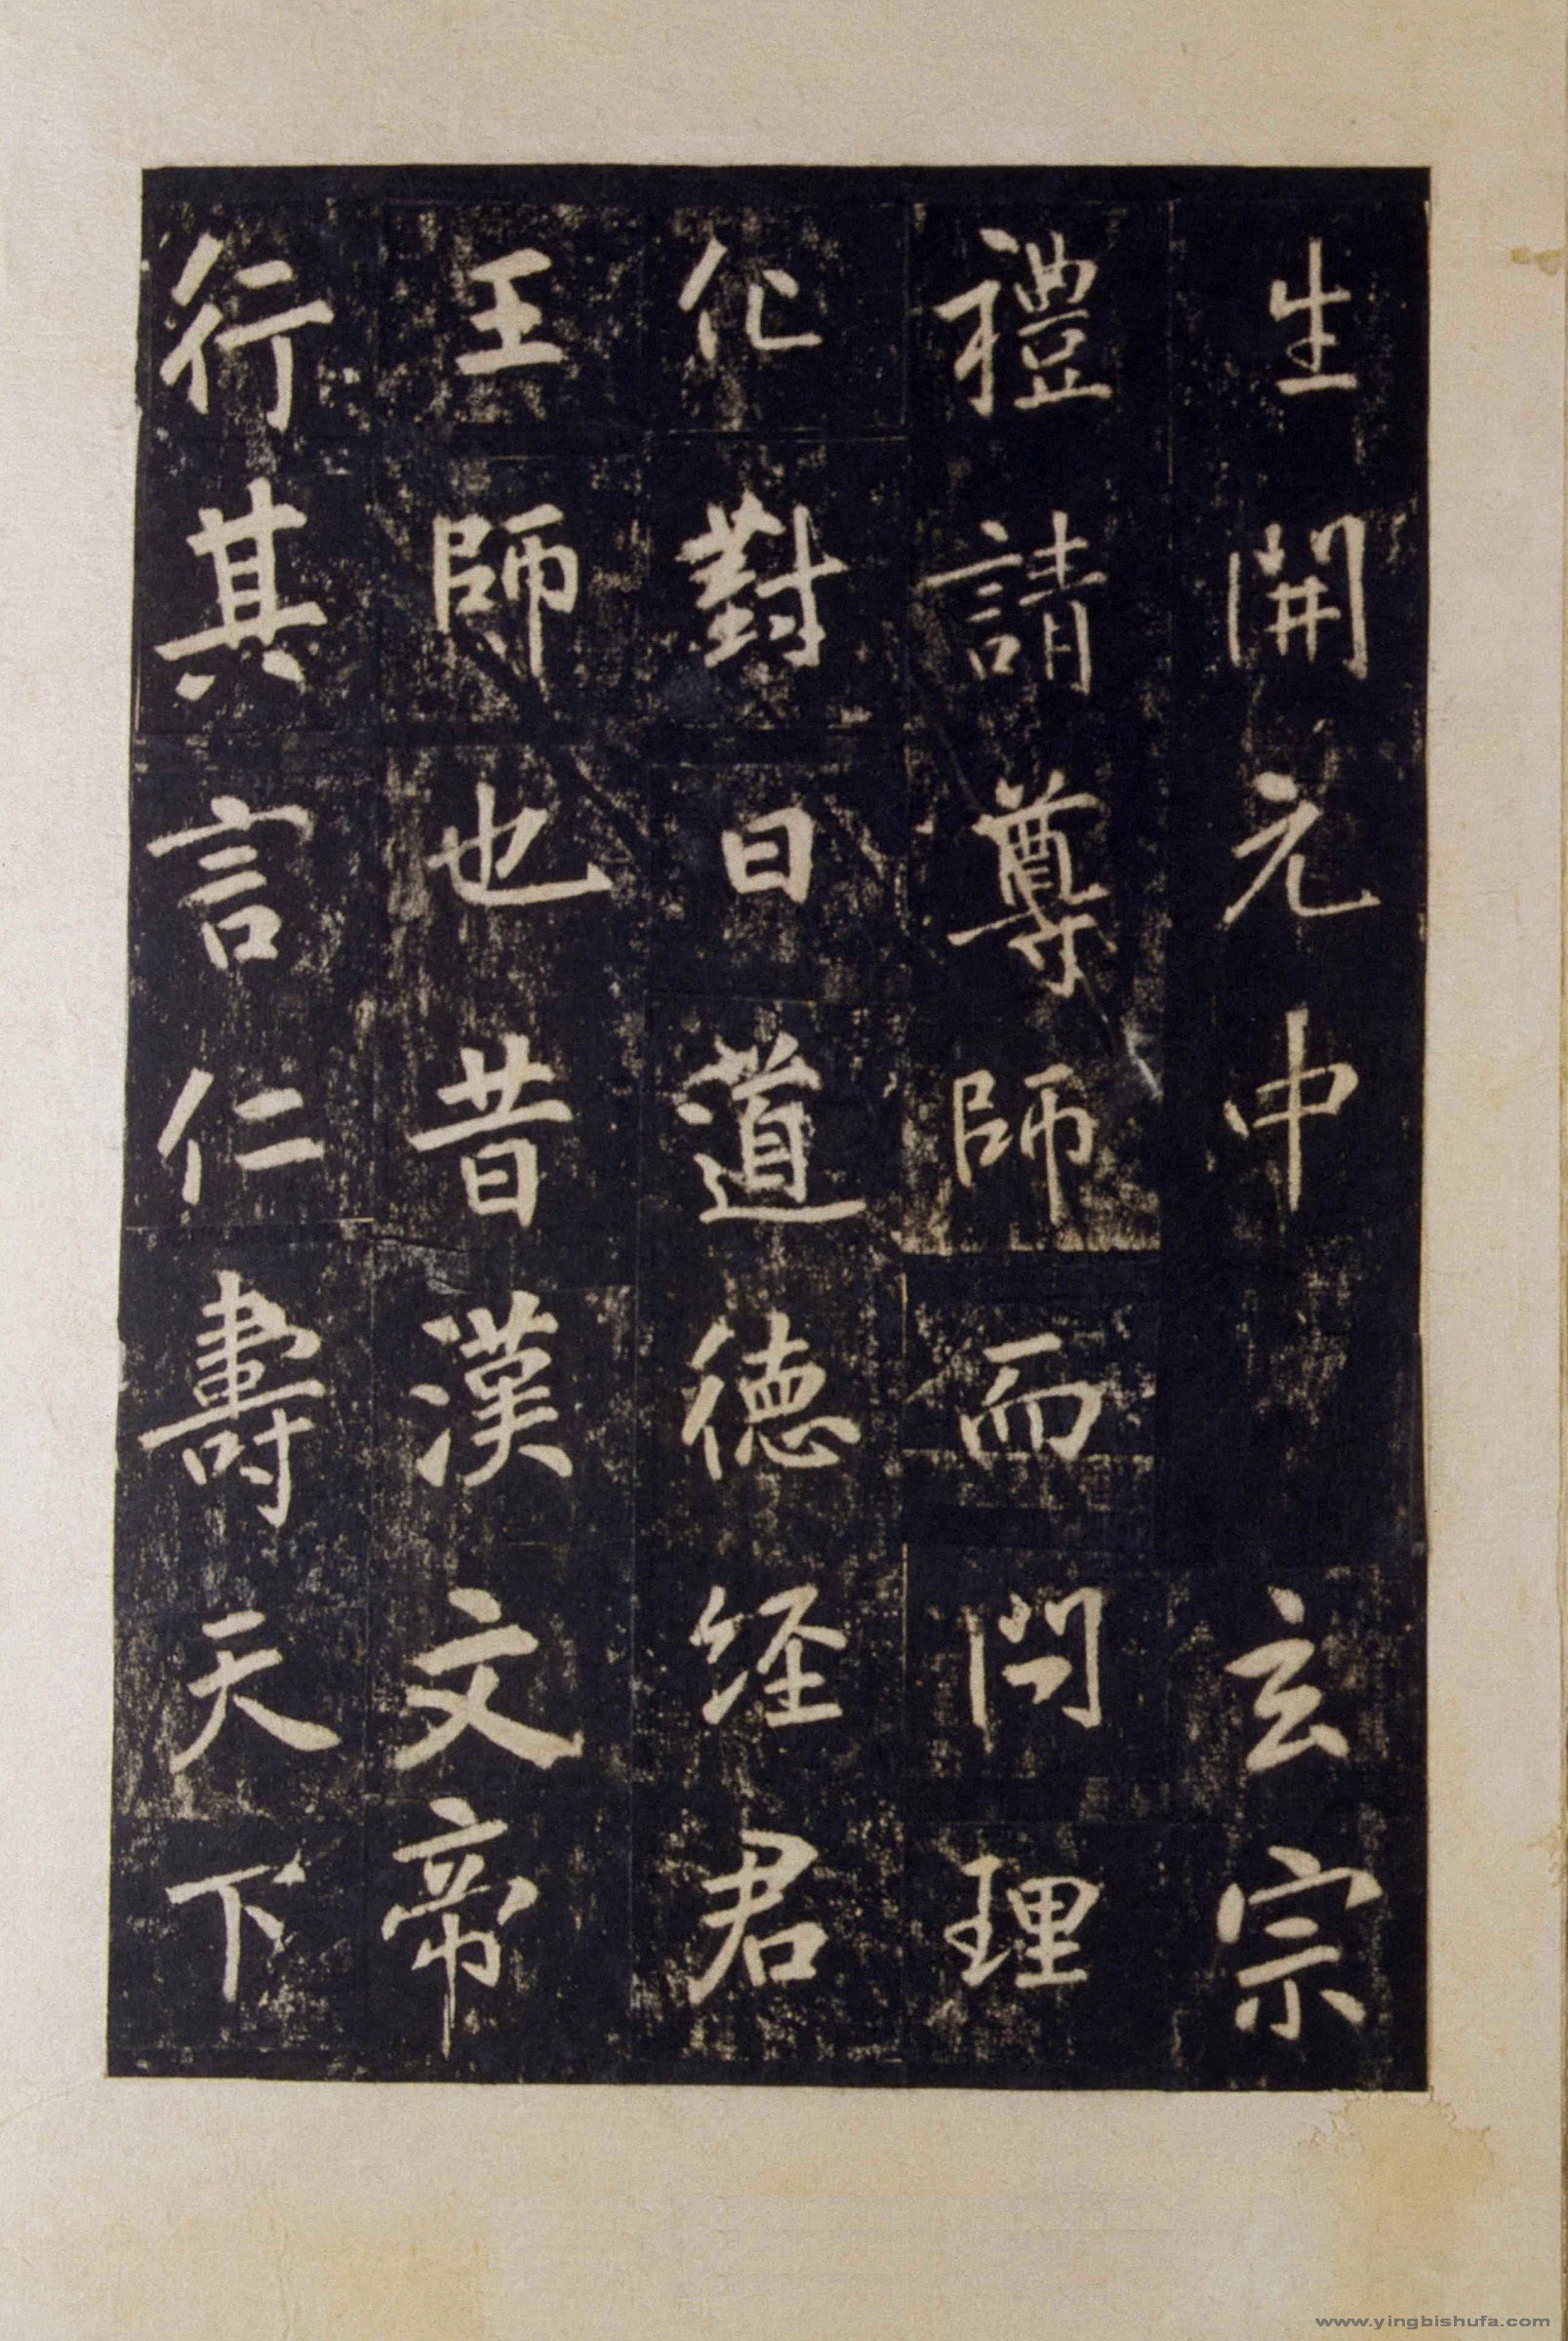 生開元中　玄宗
禮請尊師而問理
化對曰道德經君
王師也昔漢文帝
行其言仁壽天下
www.yingbishufa.com